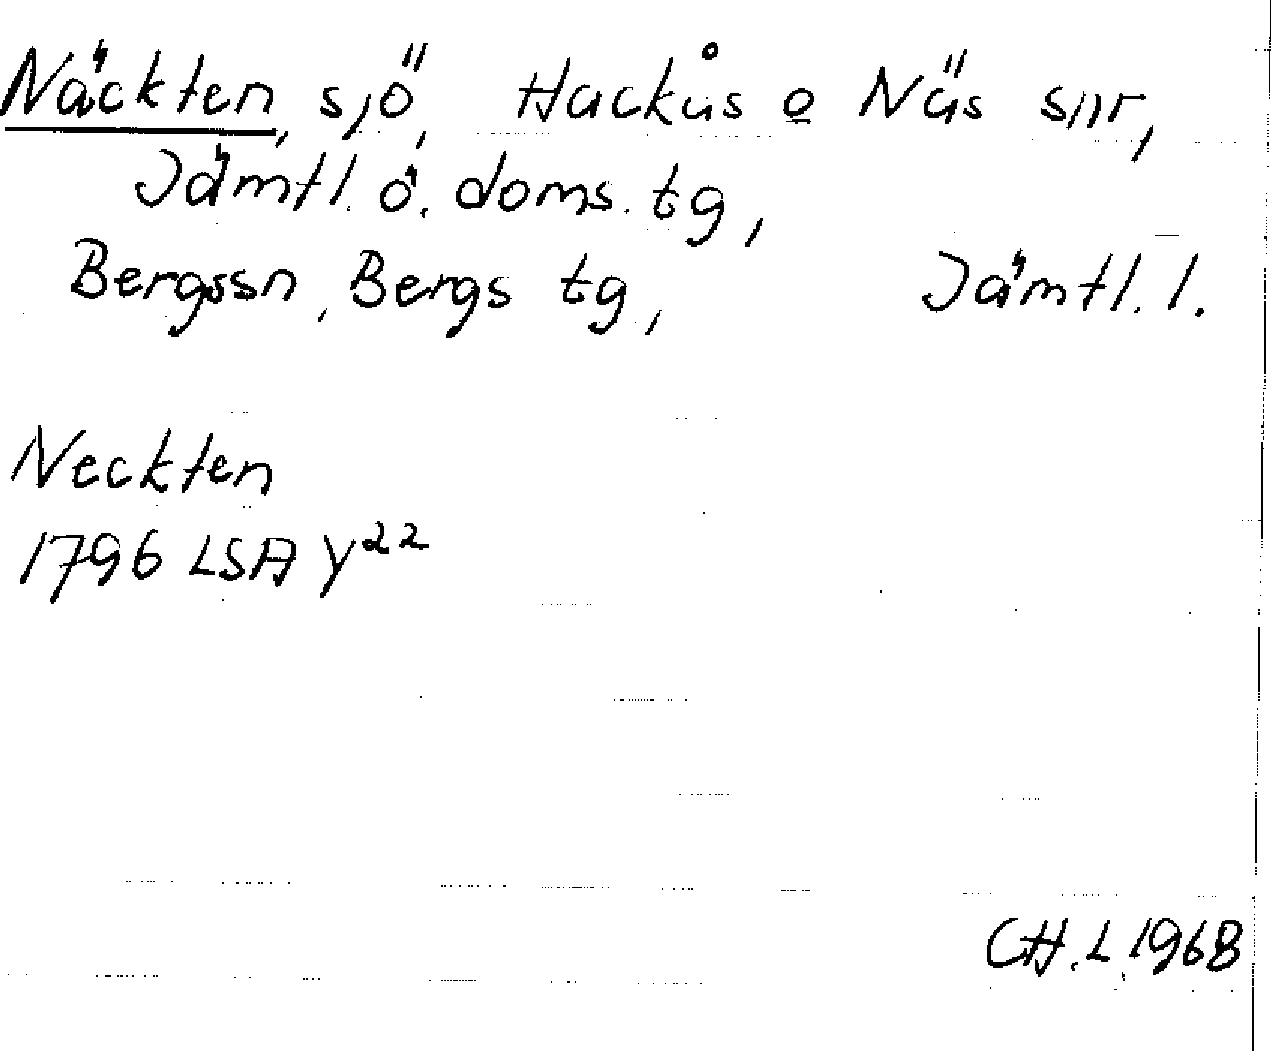 Näckten, sjö, Hackås o Näs snr,
Jämtl. ö. doms. tg,
Bergssn, Bergs tg, Jämtl. l.
Neckten
1796 LSA Y22
CH.L 1968